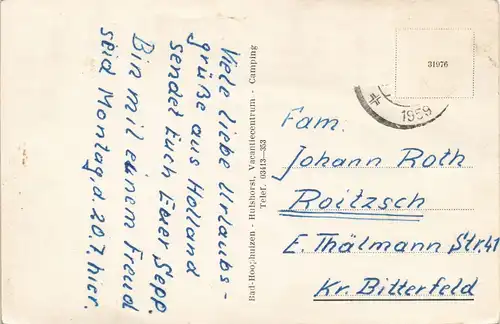 Viele liebe Urlaubs-
grüße aus Holland
sendet Euch Euer Sepp.
Bin mit einem Freud
seid Montag d. 20.7. hier.
Bad-Hoophuizen - Hulshorst, Vacantiecentrum - Camping
Telef. 03413-353
31976
1959
Fam.
Johann Roth
Roitzsch
E. Thälmann Str. 41
Kr. Bitterfeld